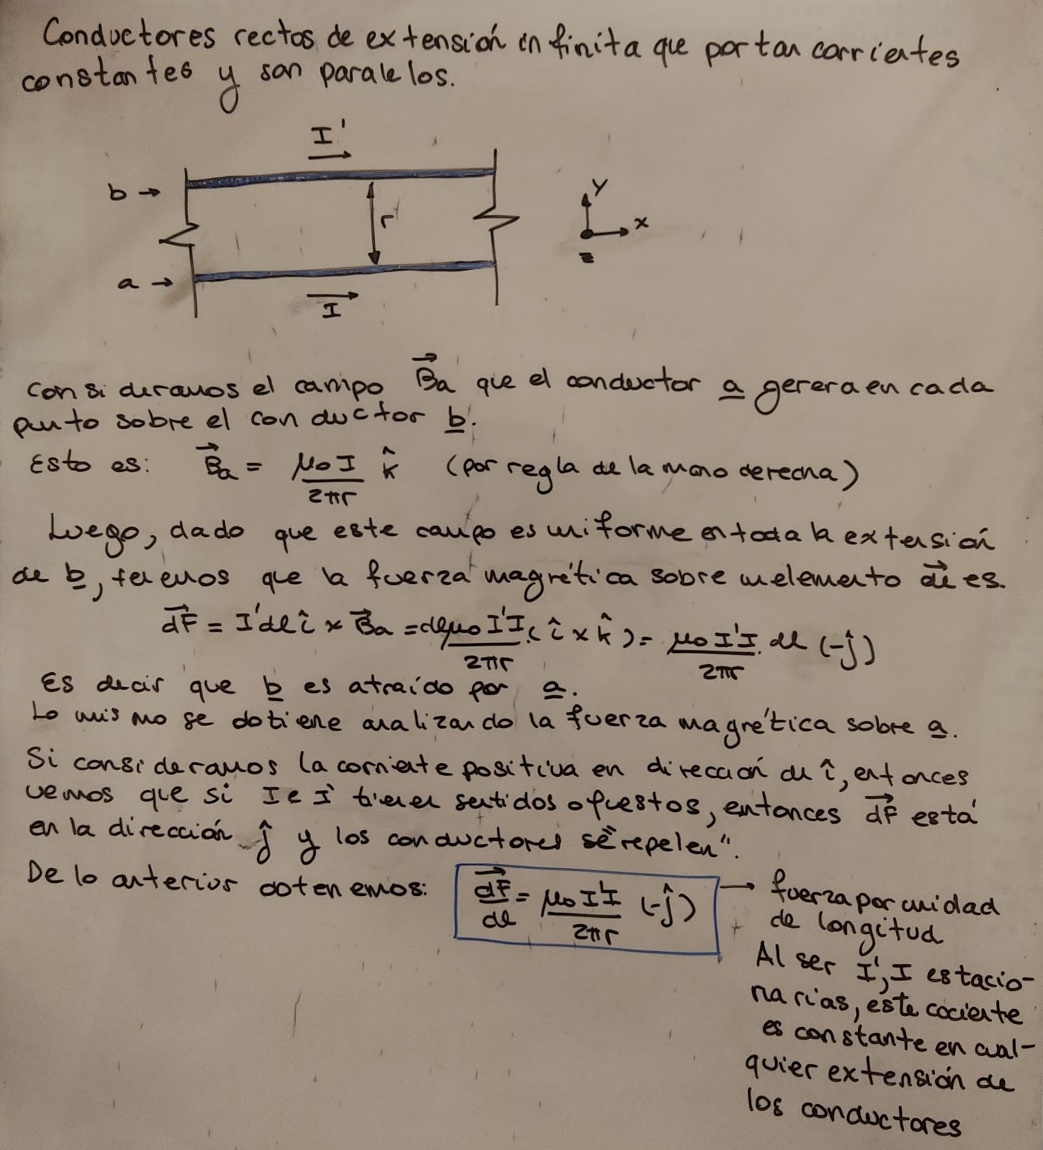 Conductores rectos de extensión infinita que portan corrientes
constantes y son paralelos.
I'
b →
r
Y
x
z
a →
I
Consideramos el campo B⃗a que el conductor a genera en cada
punto sobre el conductor b.
Esto es: B⃗a = μ₀I/2πr k̂ (por regla de la mano derecha)
Luego, dado que este campo es uniforme en toda la extensión
de b, tenemos que la fuerza magnética sobre un elemento dl⃗ es.
dF⃗ = I'dl î × B⃗a = dl μ₀I'I/2πr (î × k̂) = μ₀I'I/2πr . dl (-ĵ)
Es decir que b es atraído por a.
Lo mismo se obtiene analizando la fuerza magnética sobre a.
Si consideramos la corriente positiva en dirección de î, entonces
vemos que si I e I' tienen sentidos opuestos, entonces dF⃗ está
en la dirección ĵ y los conductores se "repelen".
De lo anterior obtenemos: dF⃗/dl = μ₀I'I/2πr (-ĵ) → fuerza por unidad
de longitud
Al ser I', I estacio-
narias, este cociente
es constante en cual-
quier extensión de
los conductores